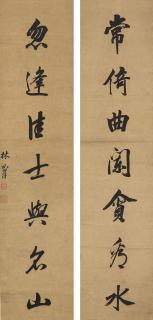 常倚曲闌貪看水
忽逢佳士與名山
林